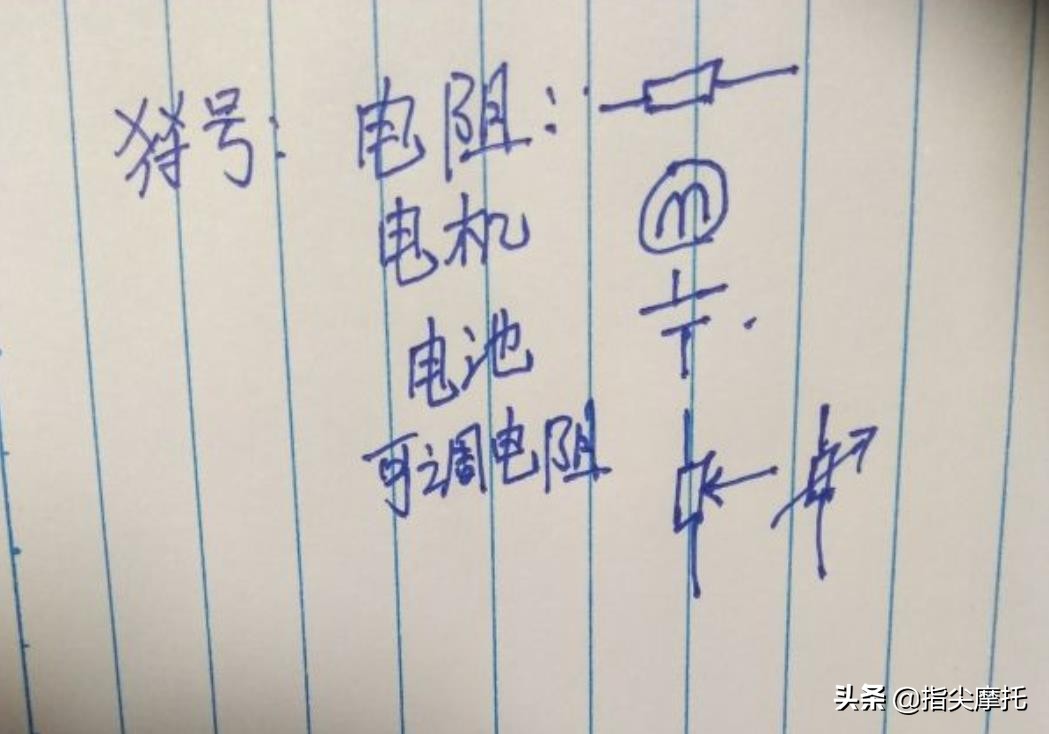 符号: 电阻:
电机
m
电池
可调电阻
头条 @指尖摩托